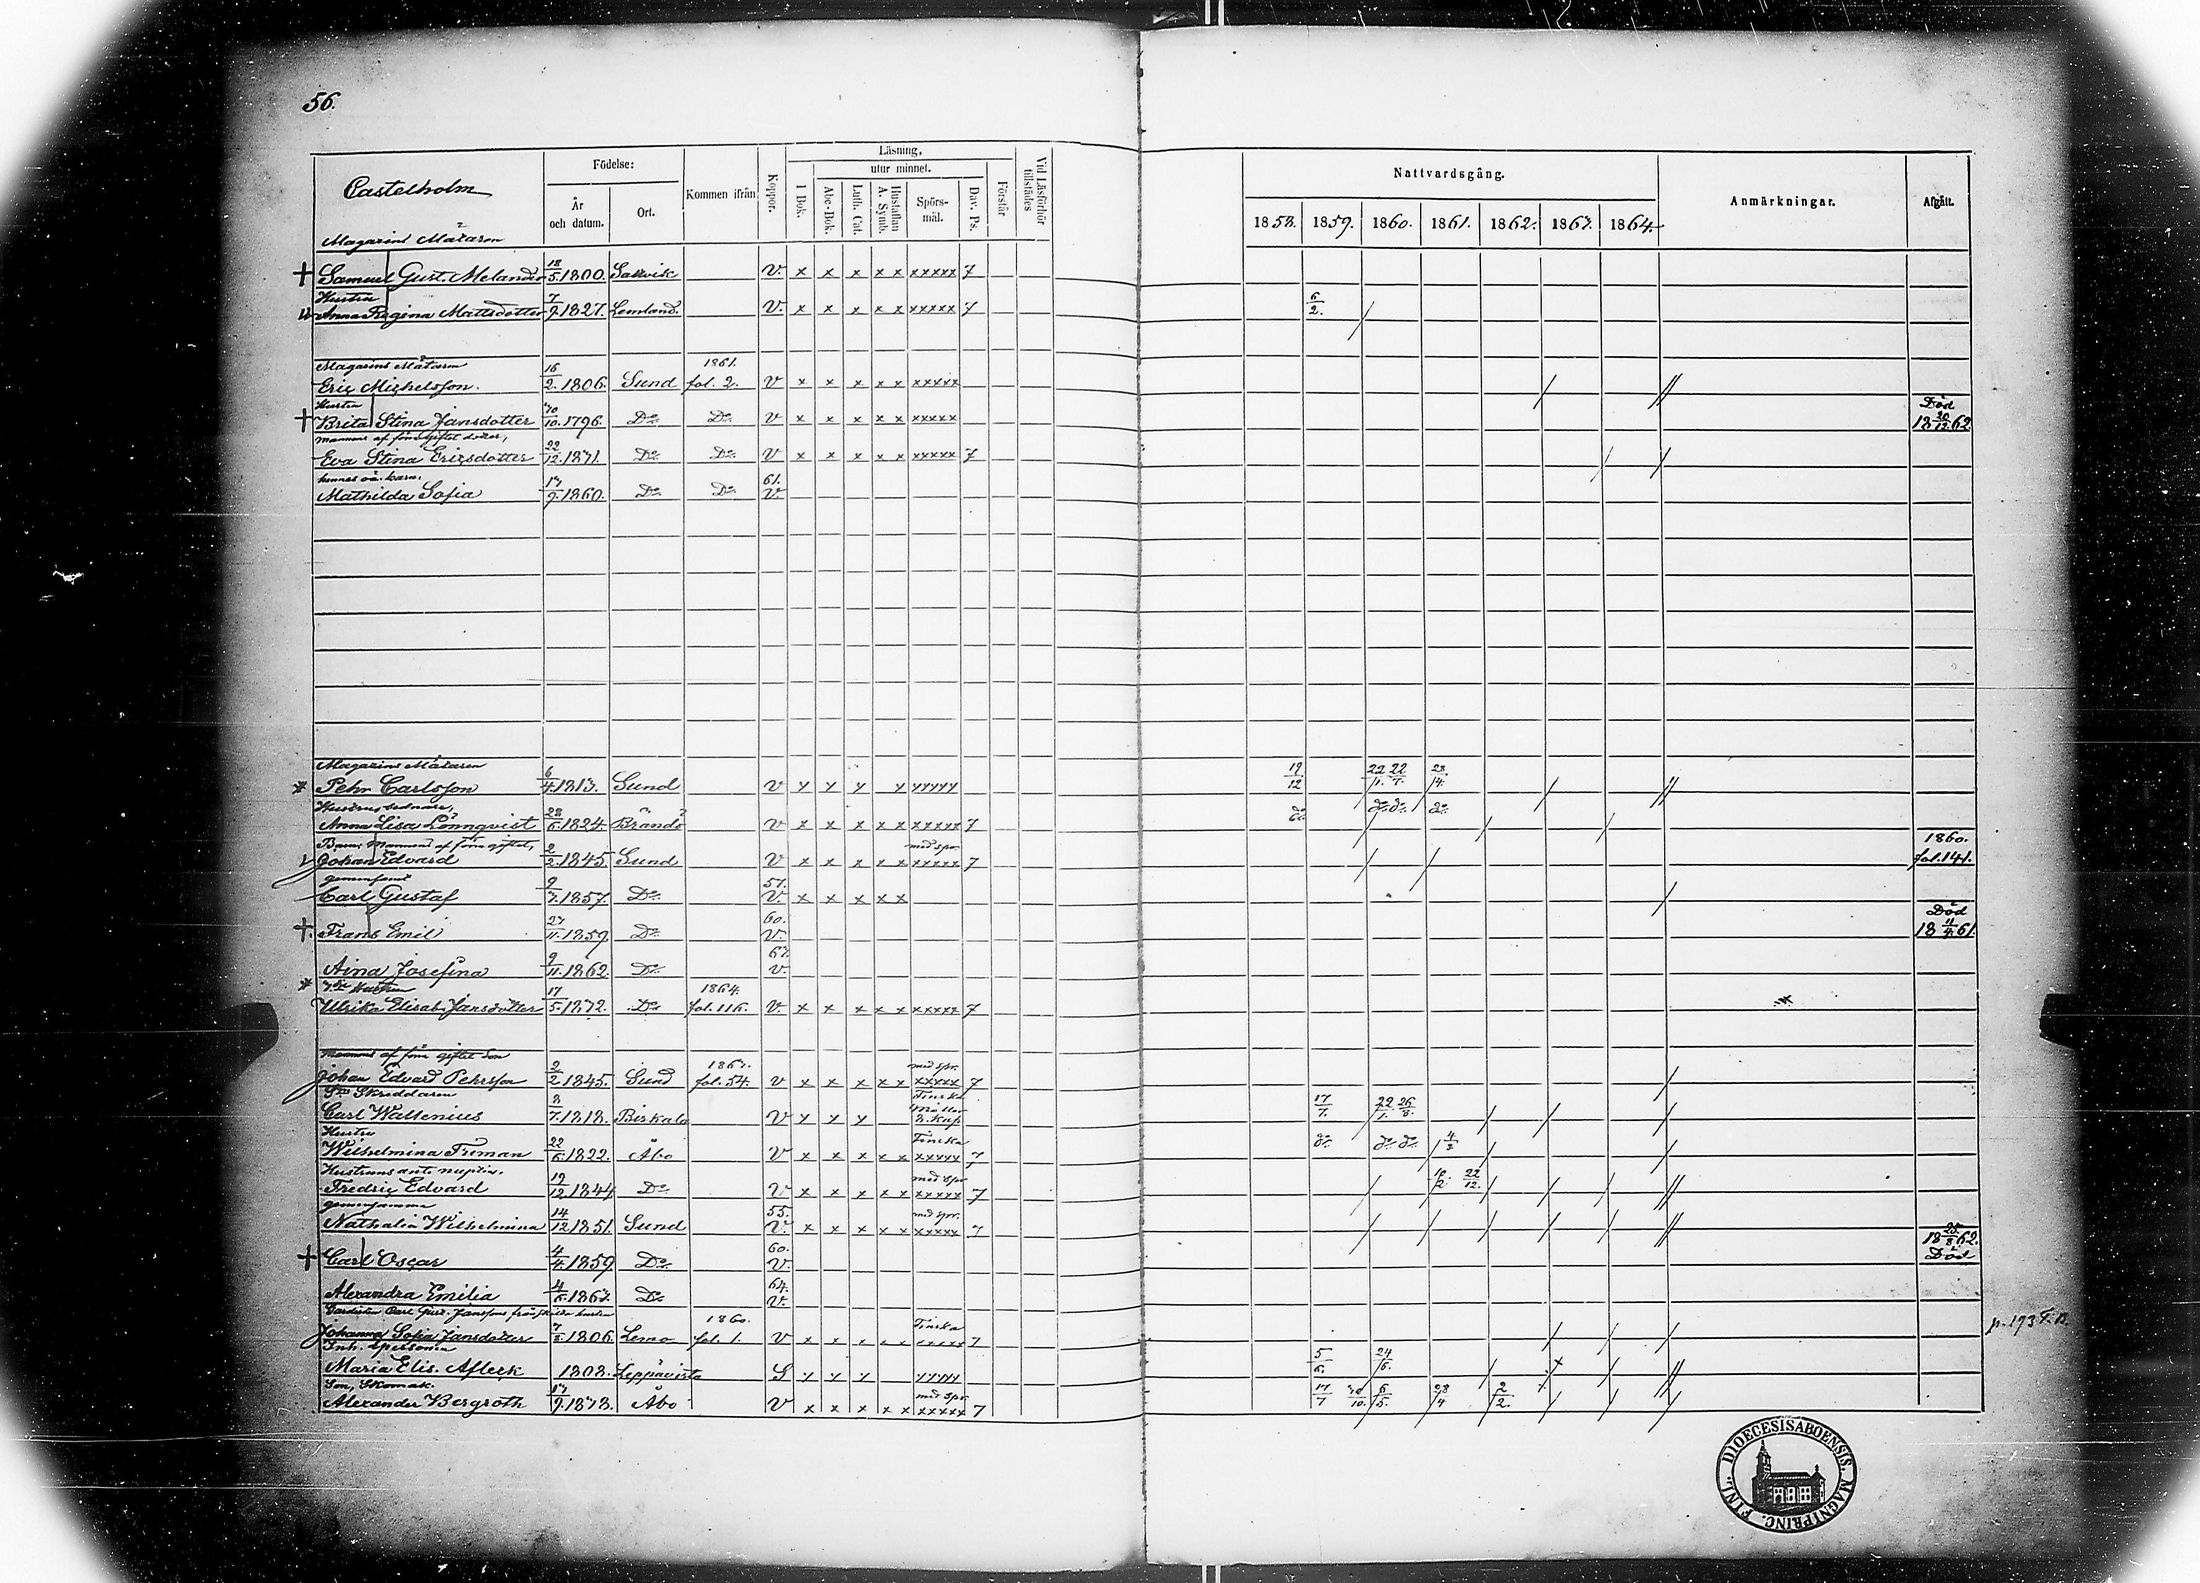 56.
Castelholm
Födelse:
År och datum.
Ort.
Kommen ifrån
Koppor.
Läsning,
utur minnet.
I Bok.
Abc-Bok.
Luth. Cat.
Hustaflan A. Symb.
Spörs-mål.
Dav. Ps.
Förstår
Vid Läsförhör tillstädes
Nattvardsgång.
1858. 1859. 1860. 1861. 1862. 1863. 1864.
Anmärkningar.
Afgått.
Magasins Mätaren
† Samuel Gust. Melander 18/5 1800. Saltvik V. x x x x x xxxxx 7
Hustru
Anna Regina Mattsdotter 7/9 1827. Lemland. V. x x x x x xxxxx 7 6/2.
Magasins Mätaren 1861.
Eric Michelsson. 16/2. 1806. Sund fol. 2. V x x x x x xxxxx
Hustru Död
† Brita Stina Jansdotter 30/10. 1796. Do Do V x x x x x xxxxx 18 20/12 62
Mannens af förra giftet dotter,
Eva Stina Ericsdotter 22/12. 1831. Do Do V x x x x x xxxxx 7
hennes oä. barn. 61.
Mathilda Sofia 13/9. 1860. Do Do V.
Magasins Mätaren
* Pehr Carlsson 6/4. 1813. Sund V 19/12 22/1. 22/7. 28/4.
Hustrus
Anna Lisa Lönnqvist 28/6. 1824. Brändö V x x x x x xxxxx 7 do do do do
Barn, Mannens af förra giftet, med spr. 1860.
Johan Edvard 2/2. 1845. Sund V x x x x x xxxxx 7 fol. 141.
gemensamt 57.
Carl Gustaf 9/3. 1857. Do V. x x x x x
60. Död
† Frans Emil 27/11. 1859. Do V. 18 11/4. 61.
63.
Aina Josefina 9/11. 1862. Do V.
* 3die Hustrun 1864.
Ulrika Elisab. Jansdotter 17/5. 1832. Do fol. 116. V. x x x x x xxxxx 7
Mannens af förra giftet Son 1863. med spr.
Johan Edvard Pehrsson 2/2. 1845. Sund fol. 54. V x x x x x xxxxx 7
Skräddaren Finska
Carl Wallenius 3/7. 1818. Birkala V 17/7. 22/1. 26/8.
Hustru Finska
Wilhelmina Froman 22/6. 1822. Åbo V x x x x x xxxxx 7 do do do 4/3
Hustruns ante nuptias. med spr
Fredric Edvard 19/12 1844 Do V x x x x x xxxxx 7 22/12.
gemensamma 55. med spr.
Nathalia Wilhelmina 14/12 1851. Sund V. x x x x x xxxxx 7
60. 18 25/8 62.
† Carl Oscar 4/4. 1859 Do V. Död
64.
Alexandra Emilia 4/6. 1863. Do V.
Gardisten Carl Gust. Janssons frånskilda hustru 1860. Finska
Johanna Sofia Jansdotter 1806. Lemo fol. 1. V x x x x x xxxxx 7 p. 193 F.B.
Inh. Spersonen
Maria Elis. Afleck 1808. Leppävirta S 5/6. 24/6.
Son, Skomak. med spr.
Alexander Bergroth 13/9. 1838. Åbo V x x x x x xxxxx 7 17/7 30/10. 6/5. 28/4 2/2.
FINL. DIOECESIS ABOENSIS. MAGN. PRINC.